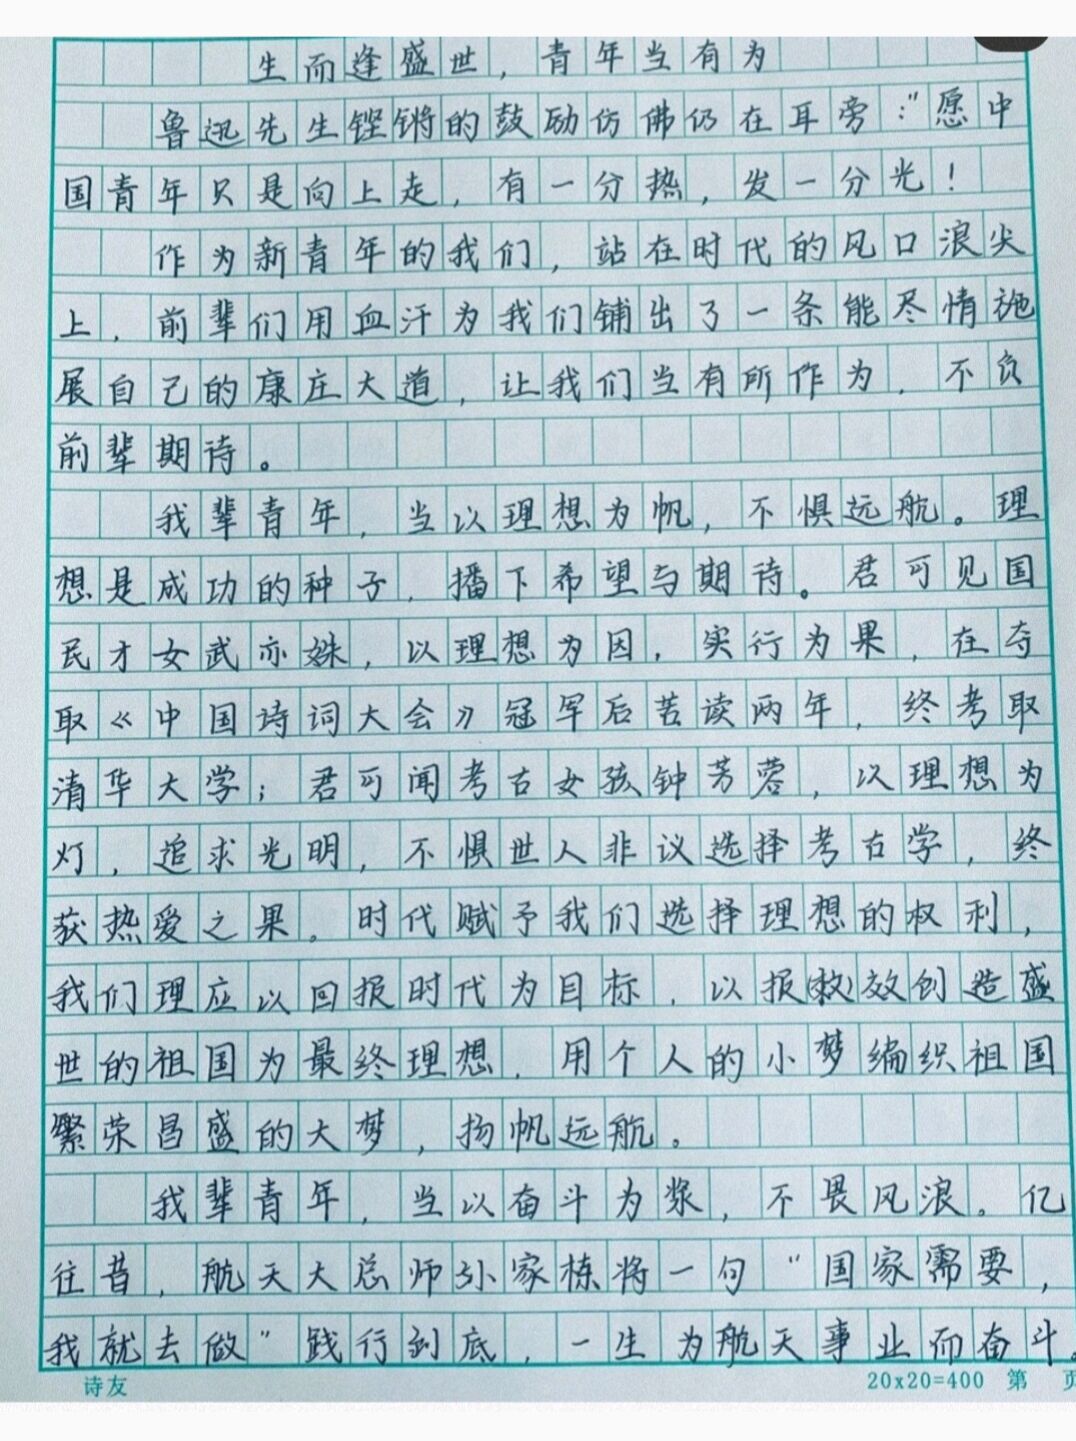 生而逢盛世，青年当有为
鲁迅先生铿锵的鼓励仿佛仍在耳旁："愿中
国青年只是向上走，有一分热，发一分光！
作为新青年的我们，站在时代的风口浪尖
上，前辈们用血汗为我们铺出了一条能尽情施
展自己的康庄大道，让我们当有所作为，不负
前辈期待。
我辈青年，当以理想为帆，不惧远航。理
想是成功的种子，播下希望与期待。君可见国
民才女武亦姝，以理想为因，实行为果，在夺
取《中国诗词大会》冠军后苦读两年，终考取
清华大学；君可闻考古女孩钟芳蓉，以理想为
灯，追求光明，不惧世人非议选择考古学，终
获热爱之果。时代赋予我们选择理想的权利，
我们理应以回报时代为目标，以报(救)效创造盛
世的祖国为最终理想，用个人的小梦编织祖国
繁荣昌盛的大梦，扬帆远航。
我辈青年，当以奋斗为桨，不畏风浪。亿
往昔，航天大总师孙家栋将一句"国家需要，
我就去做"践行到底，一生为航天事业而奋斗。
诗友
20x20=400 第 页